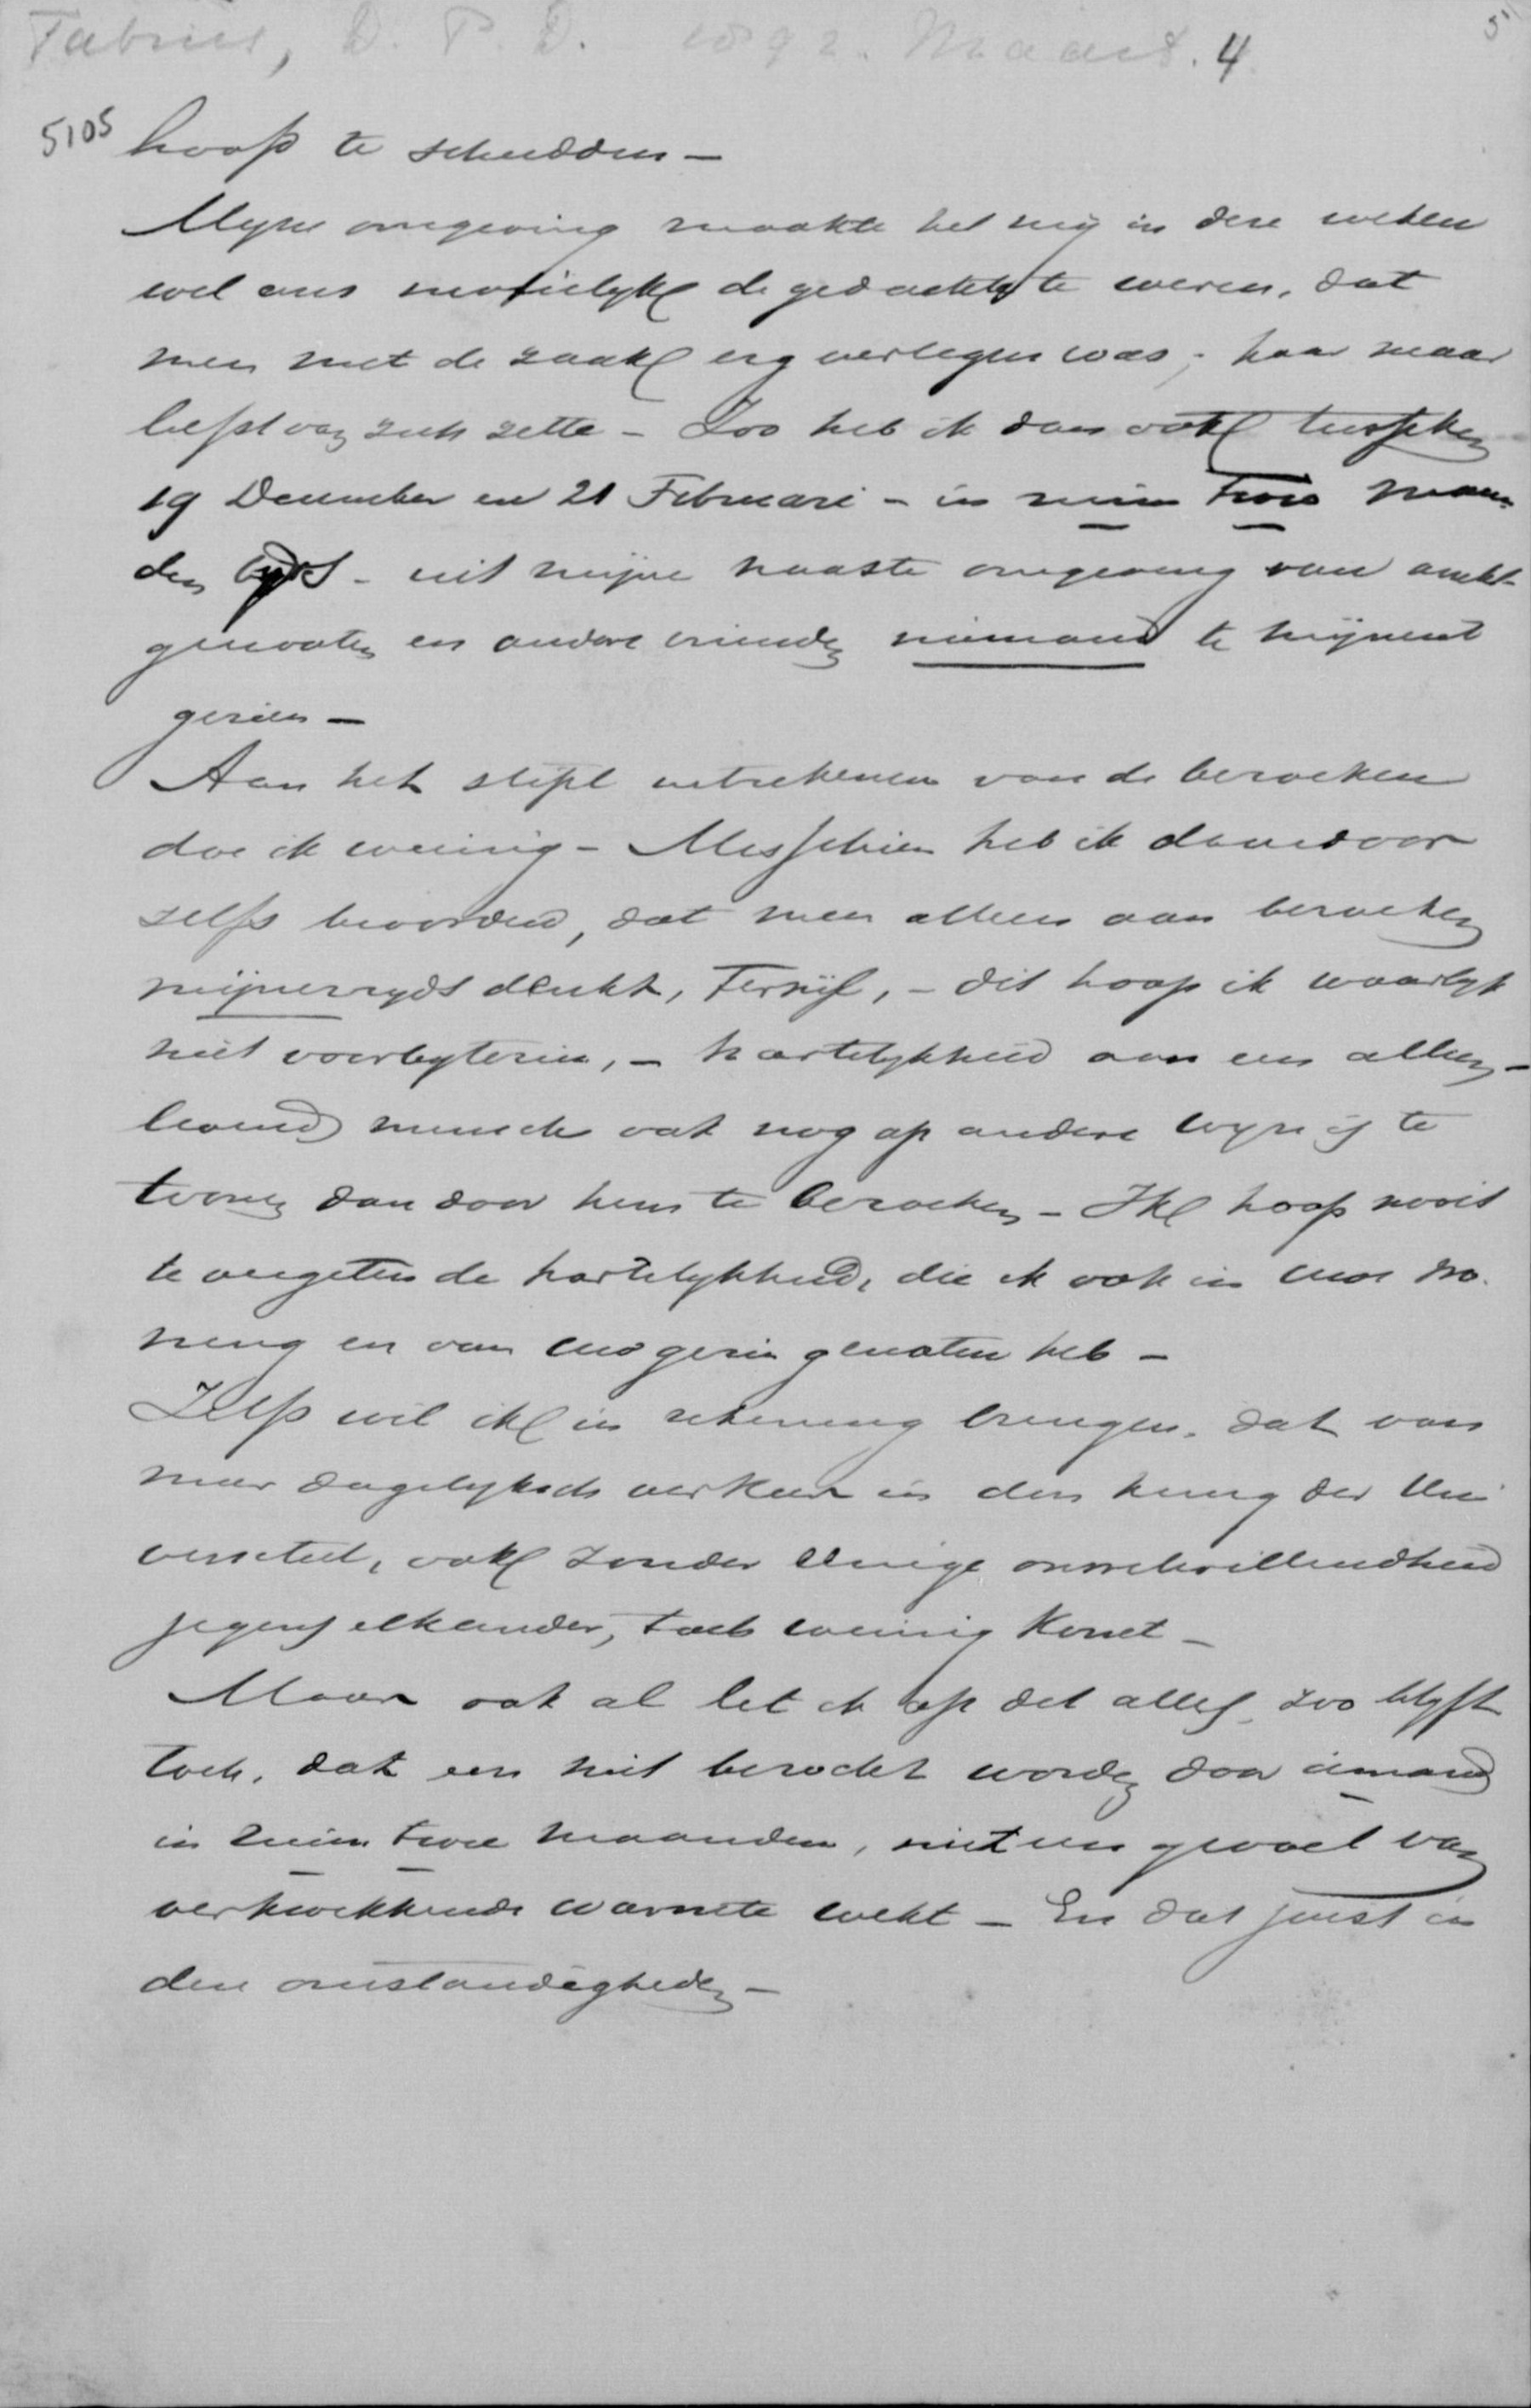 Fabius, D. P. D. 1892. Maart. 4
5105 hoofd te schudden —
Mijne omgeving maakte het mij in deze weken
wel eens moeielijk de gedachte te weren, dat
men met de zaak erg verlegen was; haar maar
liefst van zich zette — Zoo heb ik dan ook tusschen
19 December en 21 Februari — in ruim twee maan-
den tijds — uit mijne naaste omgeving van ambt-
genooten en andere vrienden niemand te mijnent
gezien —
Aan het stipt uitrekenen van de bezoeken
doe ik weinig — Misschien heb ik daardoor
zelfs bevorderd, dat men alleen aan bezoeken
mijnerzijds denkt, Terwijl, — dit hoop ik waarlijk
niet voorbij te zien, — hartelijkheid aan een alleen-
levend mensch ook nog op andere wijze is te
toonen dan door hem te bezoeken — Ik hoop nooit
te vergeten de hartelijkheid, die ik ook in uwe wo-
ning en van uw gezin genoten heb —
Zelfs wil ik in rekening brengen, dat van
meer dagelijksch verkeer in den kring der Uni
versiteit, ook zonder eenige onwelwillendheid
jegens elkander, toch weinig komt —
Maar ook al let ik op dit alles, zoo blijft
toch, dat een niet bezocht worden door iemand
in ruim twee maanden, niet een gevoel van
verkwikkende warmte wekt — En dat juist in
deze omstandigheden —